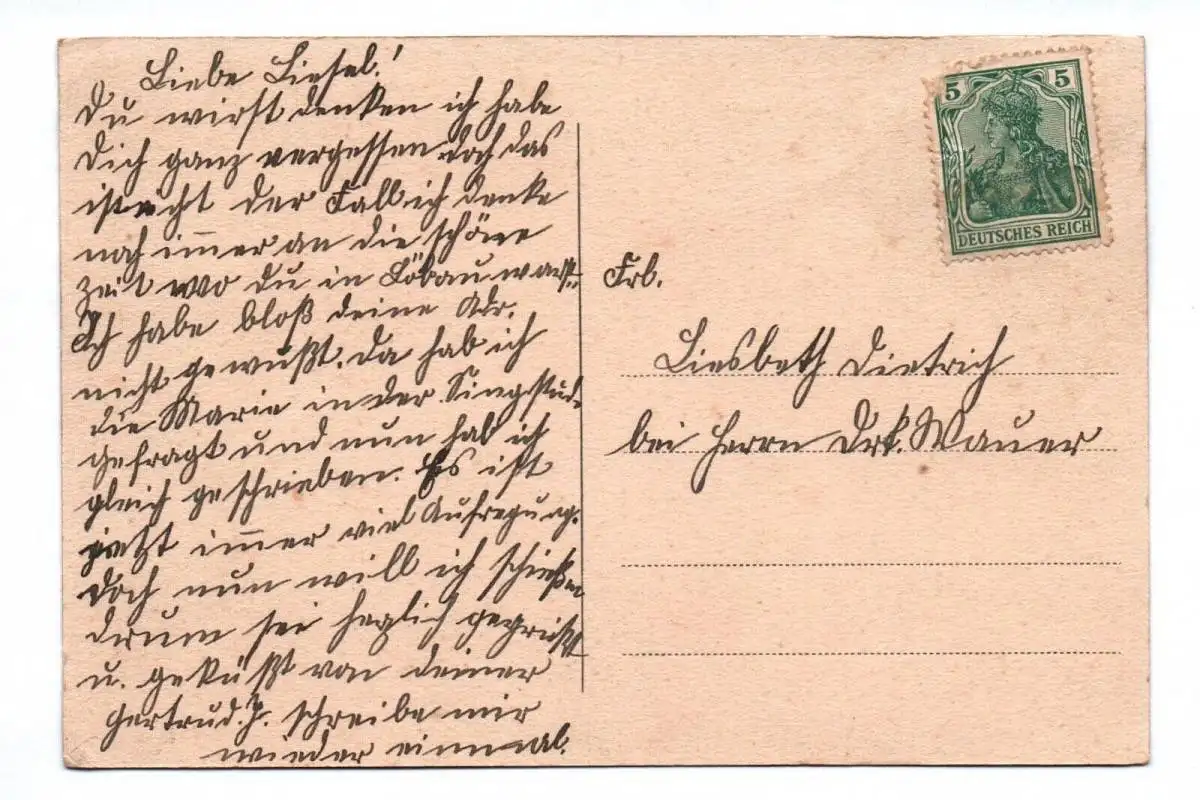 Liebe Liesel!
Du wirst denken ich habe
Dich ganz vergessen doch das
ist nicht der Fall ich denke
noch immer an die schöne
Zeit wo Du in Löbau warst.
Ich habe bloß deine Adr.
nicht gewußt. Da hab ich
die Marie in der Singstud.
gefragt und nun hab ich
gleich geschrieben. Es ist
jetzt immer viel Aufregung.
Doch nun will ich schießen
drum sei herzlich gegrüßt
u. geküßt von deiner
Gertrud. J. schreibe mir
wieder einmal.
5 5
DEUTSCHES REICH
Frl.
Liesbeth Dietrich
bei Herrn Drk. Wauer